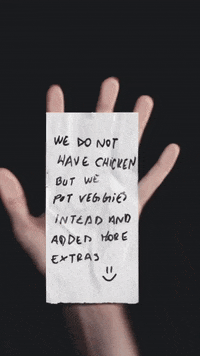 WE DO NOT
HAVE CHICKEN
BUT WE
PUT VEGGIES
INTEAD AND
ADDED MORE
EXTRAS